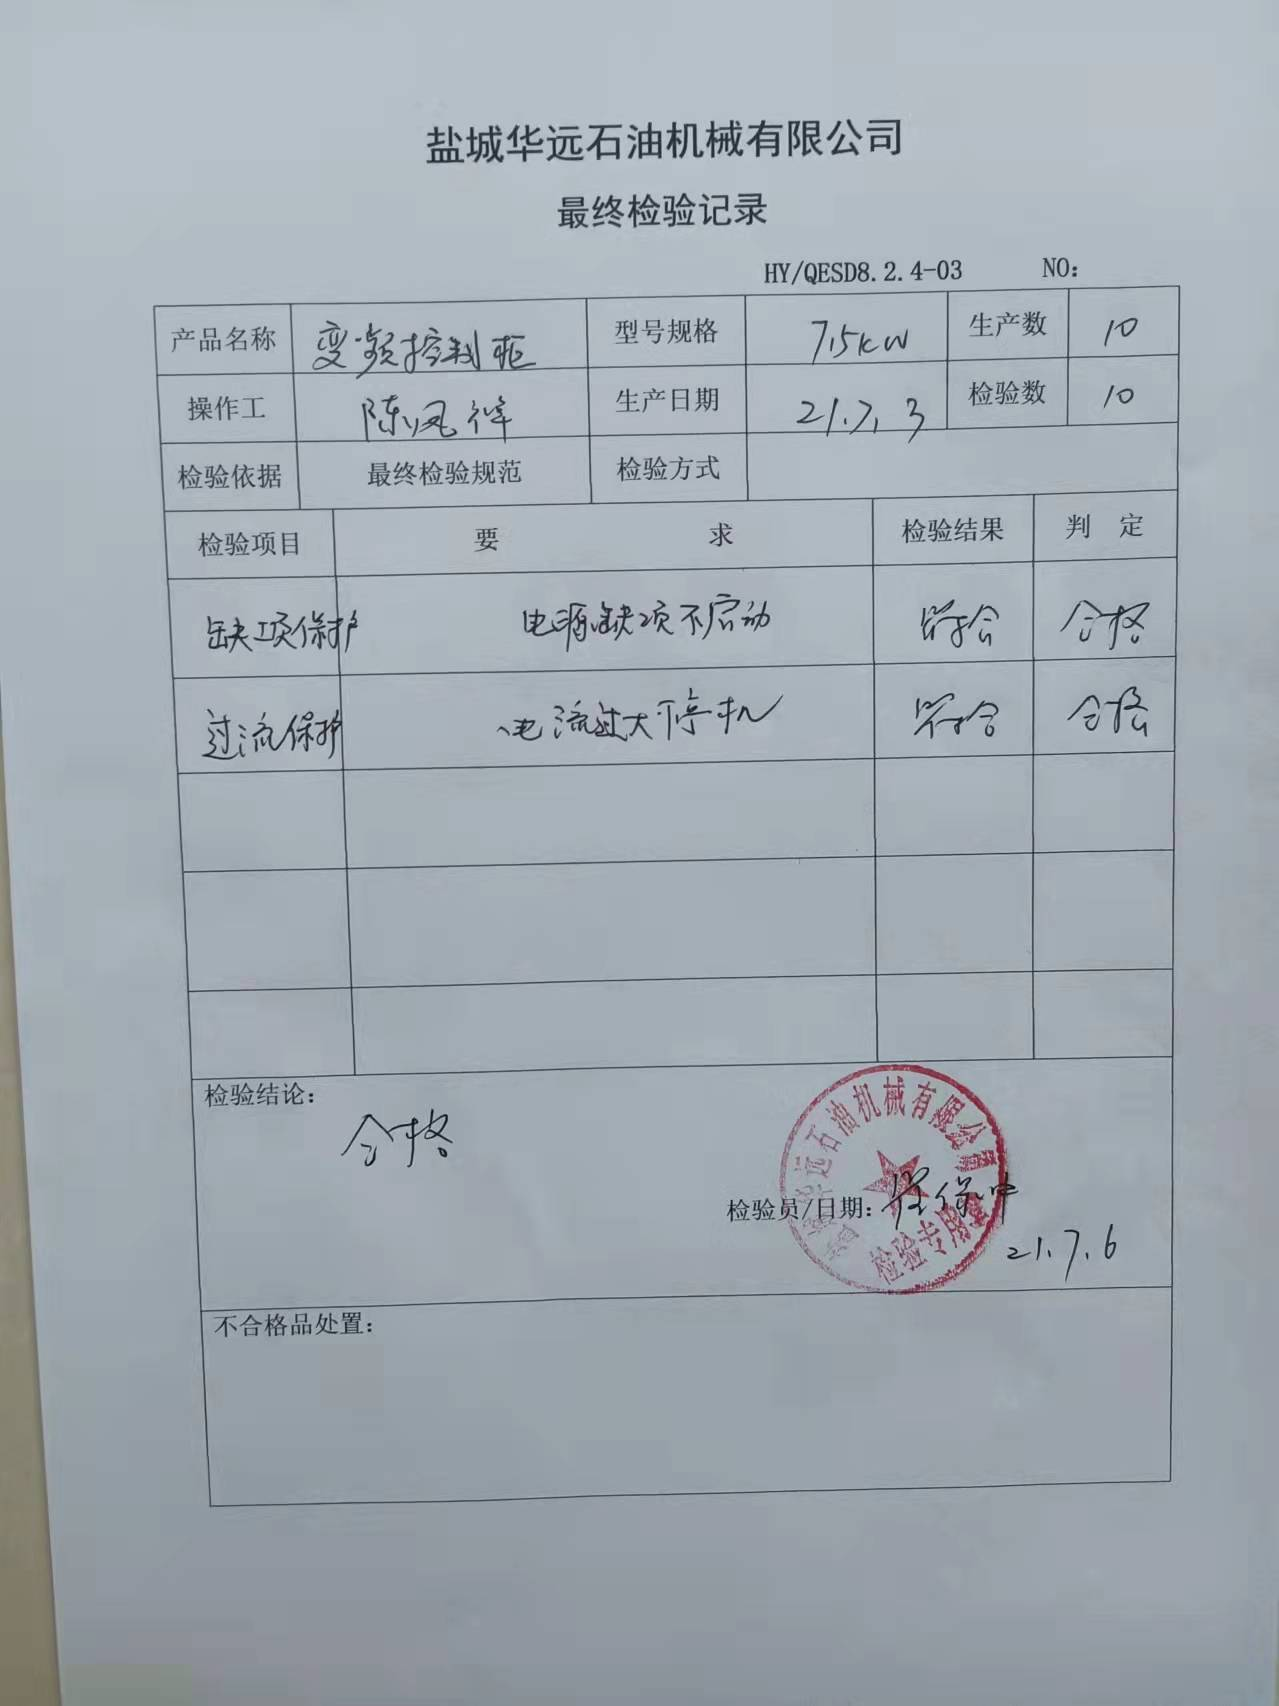 盐城华远石油机械有限公司
最终检验记录
HY/QESD8.2.4-03 NO:
产品名称 变频控制柜 型号规格 7.5kW 生产数 10
操作工 陈凤祥 生产日期 21.7.3 检验数 10
检验依据 最终检验规范 检验方式
检验项目 要 求 检验结果 判 定
缺项保护 电源缺项不启动 符合 合格
过流保护 电流过大停机 符合 合格
检验结论:
合格
盐城华远石油机械有限公司
检验专用章
检验员/日期: 保中
21.7.6
不合格品处置: